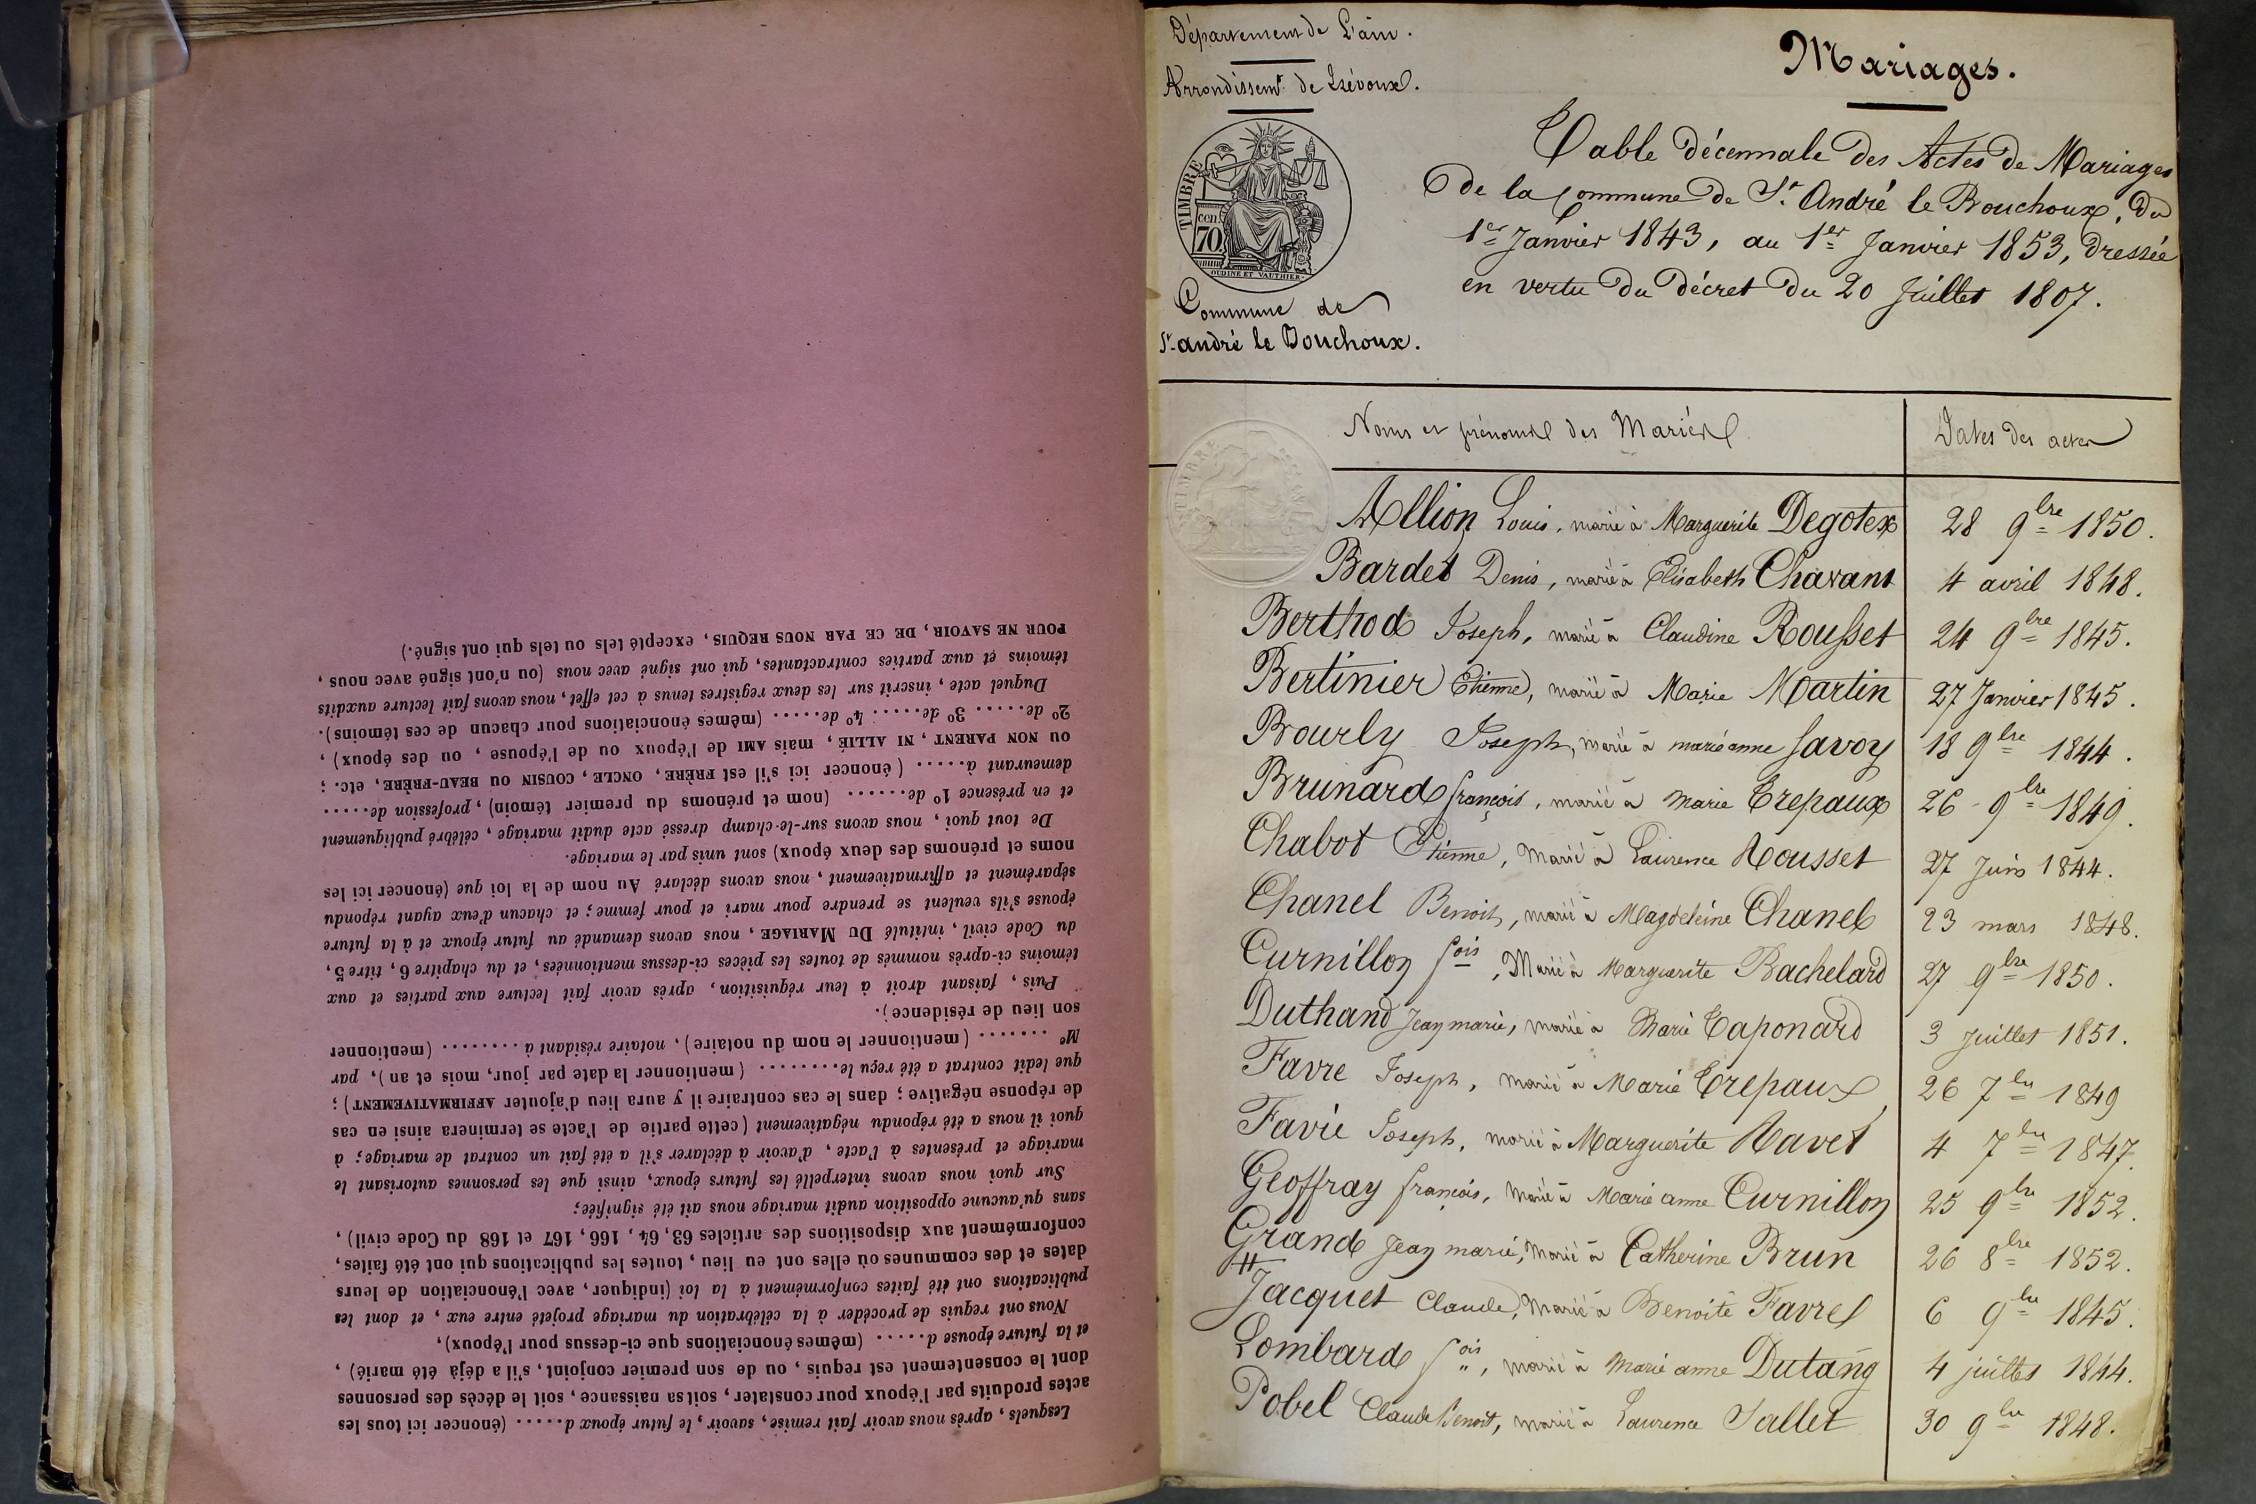 Lesquels, après nous avoir fait remise, savoir, le futur époux d..... (énoncer ici tous les
actes produits par l'époux pour constater, soit sa naissance, soit le décès des personnes
dont le consentement est requis, ou de son premier conjoint, s'il a déjà été marié),
et la future épouse d..... (mêmes énonciations que ci-dessus pour l'époux),
Nous ont requis de procéder à la célébration du mariage projeté entre eux, et dont les
publications ont été faites conformément à la loi (indiquer, avec l'énonciation de leurs
dates et des communes où elles ont eu lieu, toutes les publications qui ont été faites,
conformément aux dispositions des articles 63, 64, 166, 167 et 168 du Code civil),
sans qu'aucune opposition audit mariage nous ait été signifiée;
Sur quoi nous avons interpellé les futurs époux, ainsi que les personnes autorisant le
mariage et présentes à l'acte, d'avoir à déclarer s'il a été fait un contrat de mariage; à
quoi il nous a été répondu négativement (cette partie de l'acte se terminera ainsi en cas
de réponse négative; dans le cas contraire il y aura lieu d'ajouter AFFIRMATIVEMENT);
que ledit contrat a été reçu le........ (mentionner la date par jour, mois et an), par
Me ....... (mentionner le nom du notaire), notaire résidant à ........ (mentionner
son lieu de résidence).
Puis, faisant droit à leur réquisition, après avoir fait lecture aux parties et aux
témoins ci-après nommés de toutes les pièces ci-dessus mentionnées, et du chapitre 6, titre 5,
du Code civil, intitulé DU MARIAGE, nous avons demandé au futur époux et à la future
épouse s'ils veulent se prendre pour mari et pour femme; et chacun d'eux ayant répondu
séparément et affirmativement, nous avons déclaré Au nom de la loi que (énoncer ici les
noms et prénoms des deux époux) sont unis par le mariage.
De tout quoi, nous avons sur-le-champ dressé acte dudit mariage, célébré publiquement
et en présence 1º de...... (nom et prénoms du premier témoin), profession de.....
demeurant à..... (énoncer ici s'il est FRÈRE, ONCLE, COUSIN OU BEAU-FRÈRE, etc.;
OU NON PARENT, NI ALLIÉ, mais AMI de l'époux ou de l'épouse, ou des époux),
2º de..... 3º de..... 4º de..... (mêmes énonciations pour chacun de ces témoins).
Duquel acte, inscrit sur les deux registres tenus à cet effet, nous avons fait lecture auxdits
témoins et aux parties contractantes, qui ont signé avec nous (ou n'ont signé avec nous,
POUR NE SAVOIR, DE CE PAR NOUS REQUIS, excepté tels ou tels qui ont signé.)
Département de L'ain.
Arrondissemt. de Trévoux.
TIMBRE
70 cen
OUDINÉ ET VAUTHIER
Commune de
St. andré le Bouchoux.
Mariages.
Table décennale des Actes de Mariages
de la Commune de St. André le Bouchoux, du
1er Janvier 1843, au 1er Janvier 1853, dressée
en vertu du décret du 20 Juillet 1807.
Noms et prénoms des Mariés Dates des actes
TIMBRE
Allion Louis, marié à Marguerite Degotex 28 9bre 1850.
Bardet Denis, marié à Elisabeth Chavant 4 avril 1848.
Berthod Joseph, marié à Claudine Rousset 24 9bre 1845.
Bertinier Etienne, marié à Marie Martin 27 Janvier 1845.
Bourly Joseph, marié à marie anne Savoy 18 9bre 1844.
Brunard françois, marié à Marie Trepaux 26 9bre 1849.
Chabot Etienne, Marié à Laurence Rousset 27 Juin 1844.
Chanel Benoit, marié à Magdeleine Chanel 23 mars 1848.
Curnillon fois, Marié à Marguerite Bachelard 27 9bre 1850.
Duthand Jean marie, marié à Marie Taponard 3 Juillet 1851.
Favre Joseph, marié à Marie Trepaux 26 7bre 1849
Favié Joseph, marié à Marguerite Ravet 4 7bre 1847.
Geoffray françois, marié à Marie anne Curnillon 25 9bre 1852.
Grand Jean marie, Marié à Catherine Brun 26 8bre 1852.
Jacquet Claude, Marié à Benoite Favre 6 9bre 1845.
Lombard fois, marié à Marie anne Dutang 4 juillet 1844.
Pobel Claude Benoit, marié à Laurence Sallet 30 9bre 1848.